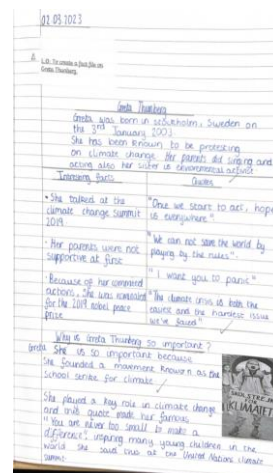 02.03.2023
L.O: To create a fact file on
Greta Thunberg.
Greta Thunberg
Greta was born in Stockholm, Sweden on
the 3rd January 2003.
She has been known to be protesting
on climate change. Her parents did singing and
acting also her sister is environmental activist
Interesting facts
Quotes
• She talked at the
climate change summit
2019.
• Her parents were not
supportive at first
• Because of her committed
actions, she was nominated
for the 2019 nobel peace
prize
"Once we start to act, hope
is everywhere".
"We can not save the world by
playing by the rules".
"I want you to panic"
"The climate crisis is both the
easiest and the hardest issue
we've faced"
Why is Greta Thunberg so important?
Greta She is so important because
she founded a movement known as the
school strike for climate.
She played a key role in climate change
and this quote made her famous
"You are never too small to make a
difference", inspiring many young children in the
world. She said this at the United Nations climate
summit.
SKOLSTREJK
KLIMATET